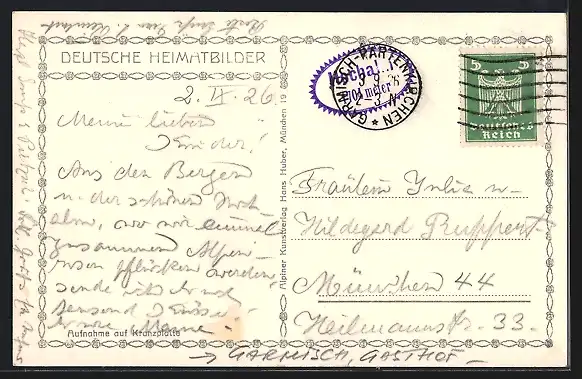 DEUTSCHE HEIMATBILDER
2. IX. 26.
Meine lieben
Kinder!
Aus den Bergen
u. der schönen Hoch-
alm, wo wir einmal
zusammen Alpen-
rosen pflücken werden,
sende ich Euch
tausend Grüsse!
Eure Mama.
Aufnahme auf Kranzplatte
Alpiner Kunstverlag Hans Huber, München 19
Hocha
1704 meter
GARMISCH-PARTENKIRCHEN
5 5
Deutsches
Reich
Fräulein Julia u.
Hildegard Ruppert
München 44
Heilmannstr. 33.
→ GARMISCH, GASTHOF